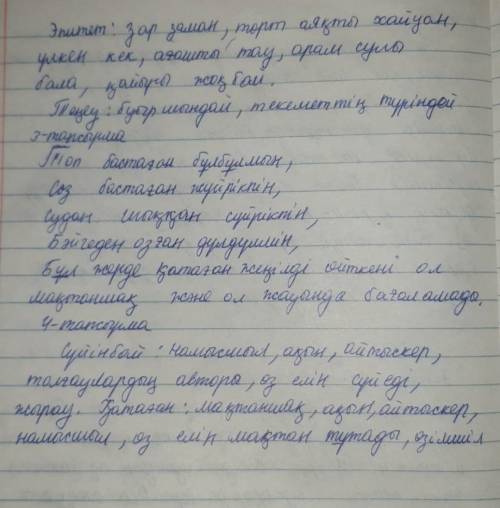 Эпитет: Зар заман, төрт аяқты хайуан,
үлкен кек, ағашты тау, арам сулы
бала, қайыры жоқ бай.
Теңеу: буыршындай, текеметтің түріндей
3-тапсырма
Топ бастаған бұлбұлмын,
Сөз бастаған жүйрікпін,
Судан шыққан сүйріктін,
Бәйгеден озған дүлдүлмін,
Бұл жерде Қатаған жеңілді өйткені ол
мақтаншақ және ол жауында бағаламады.
4-тапсырма
Сүйінбай: намысшыл, ақын, айтыскер,
толғаулардың авторы, өз елін сүйеді,
жырау. Қатаған: мақтаншақ, ақын, айтыскер,
намысшыл, өз елін мақтан тұтады, өзімшіл